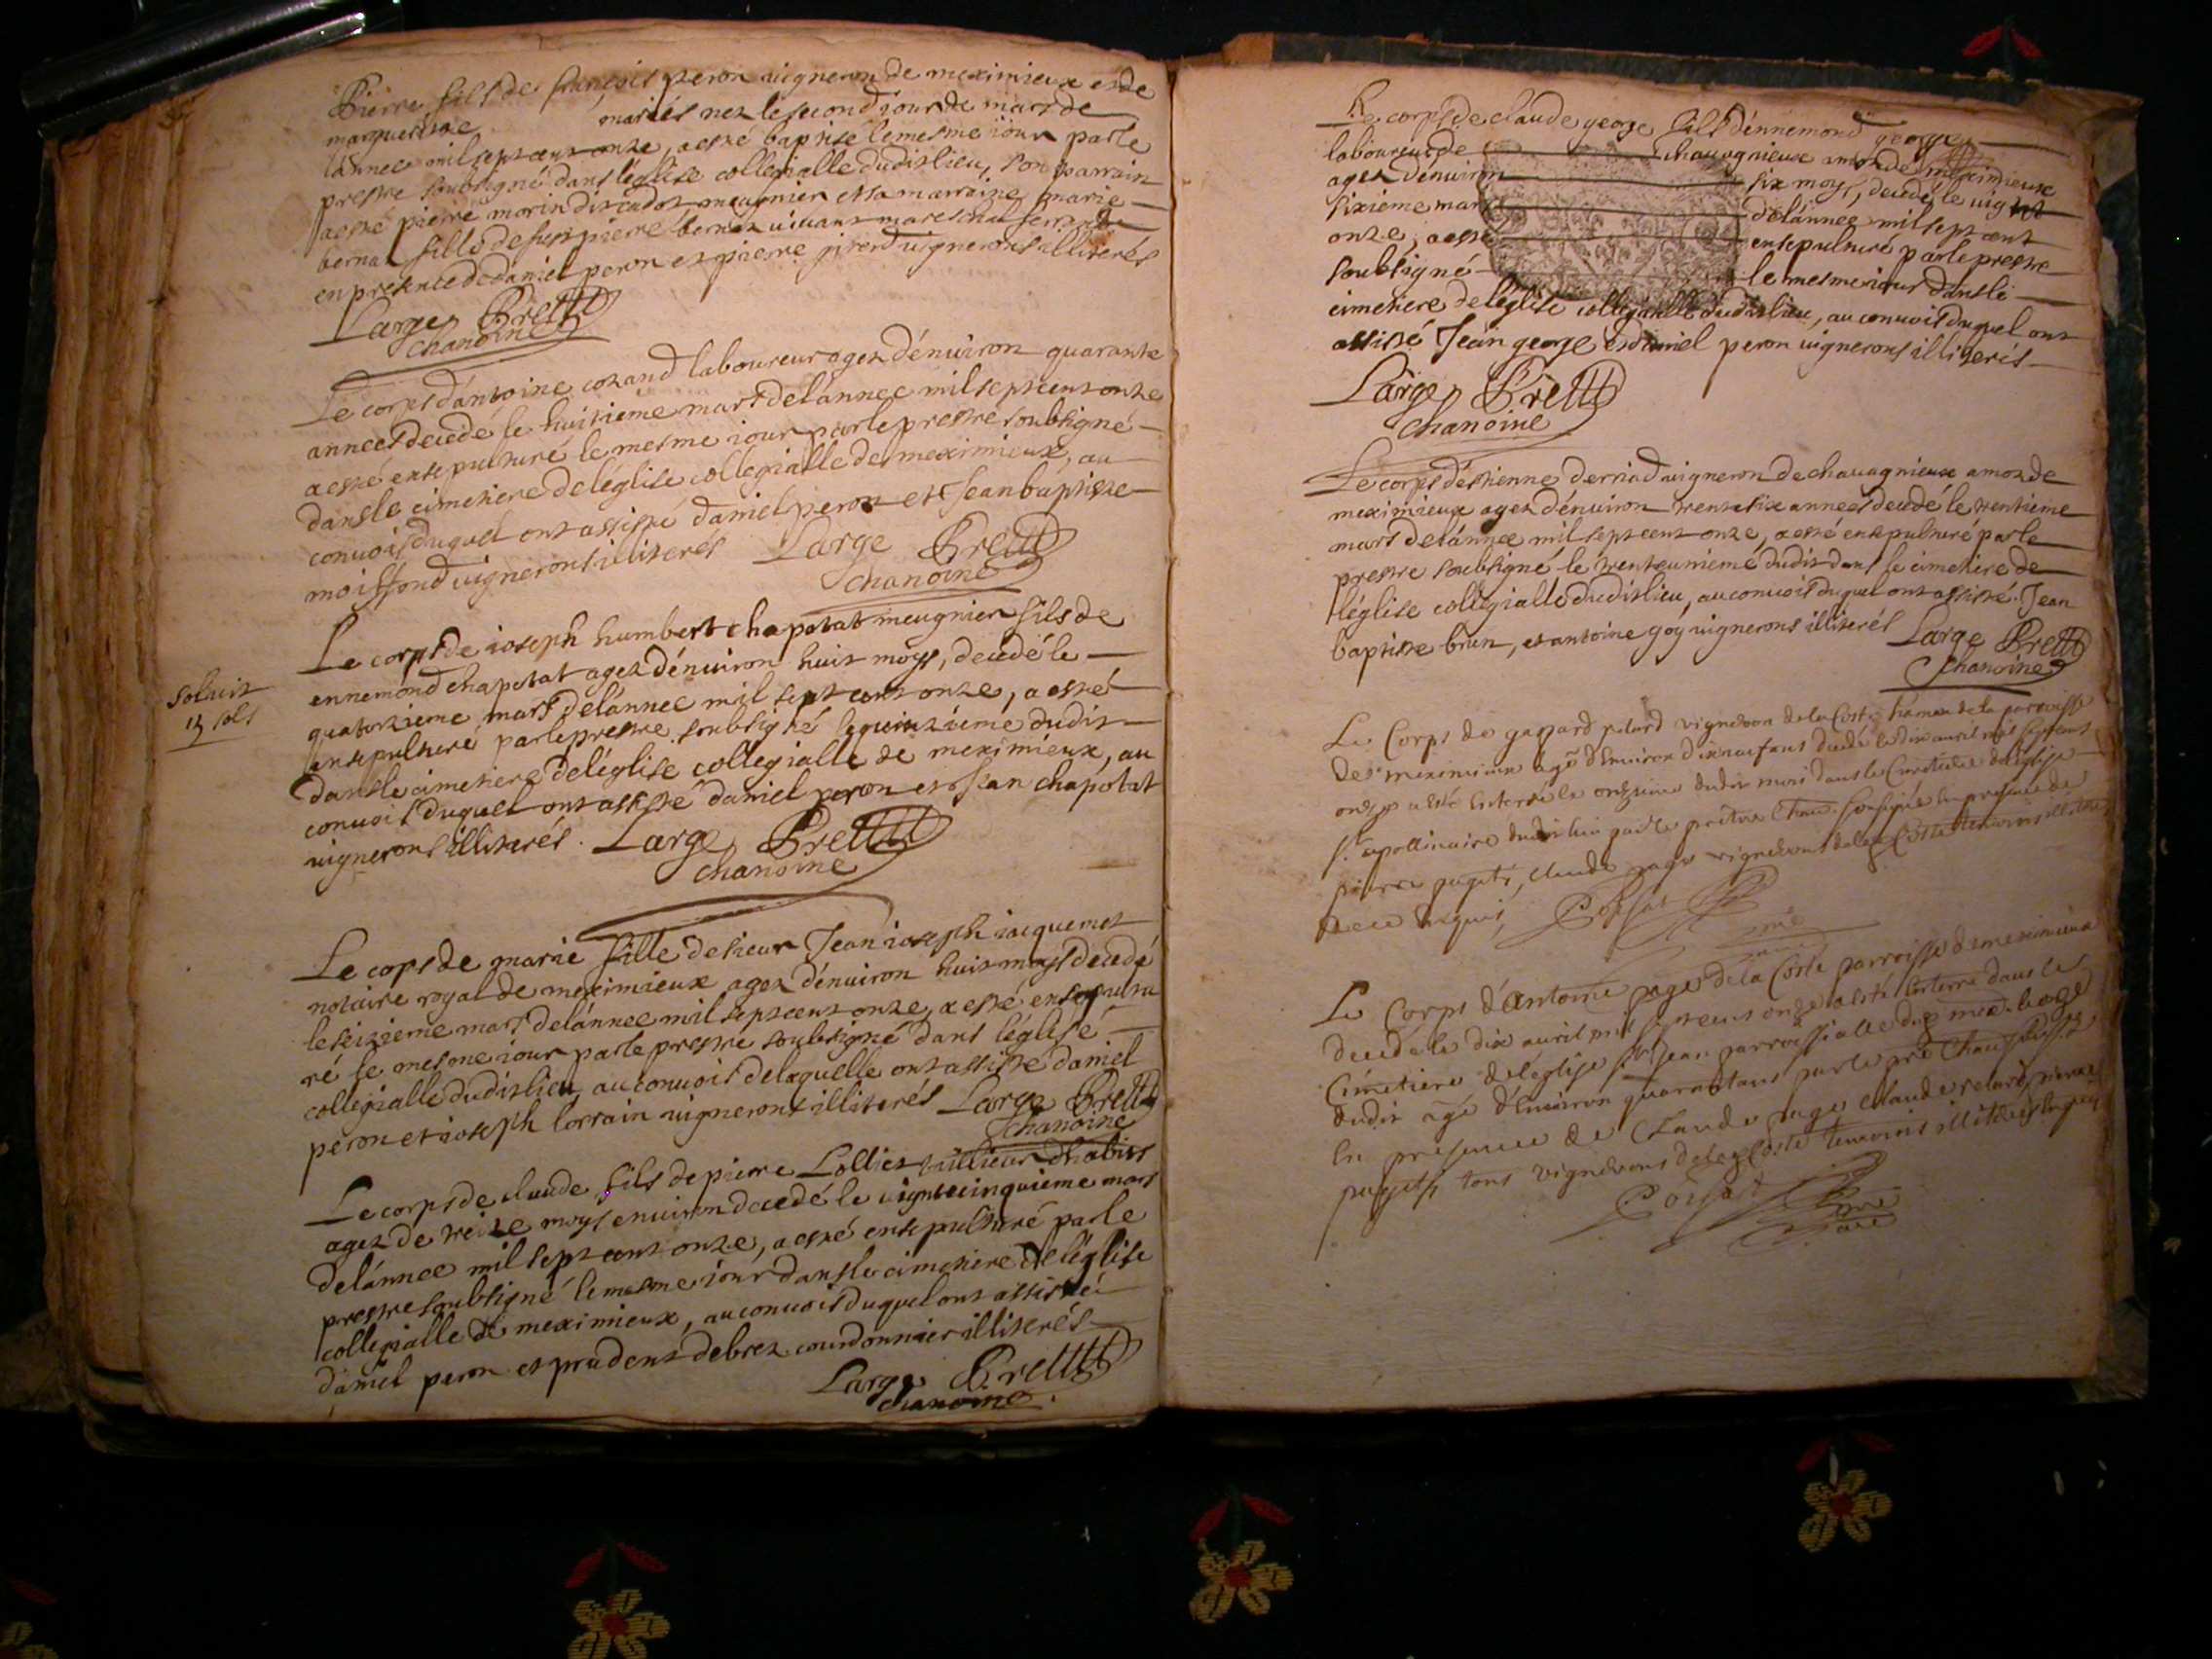 Pierre fils de françois peron uigneron de meximieux et de
margueritte mariés nez le second iour de mars de
lánnee mil sept cent onze, a esté baptisé le mesme iour par le
prestre soubsigné dans léglise collegialle dudit lieu, son parrain
a esté pierre morin dit cadot meugnier et sa marraine marie
bernar fille de feu pierre bernar uiuant mareschal
en presence de daniel peron et pierre girerd uignerons illiterés
Large Pretre
chanoine
Le corps dántoine cozand laboureur agez dénuiron quarante
annees decedé le huitieme mars de lánnee mil sept cent onze
a esté ensepulturé le mesme iour par le prestre soubsigné
dans le cimetiere de léglise collegialle de meximieux, au
conuois duquel ont assisté daniel peron et Jean baptiste
moiffond uignerons illiterés Large Pretre
chanoine
soluit
15 sols
Le corps de ioseph humbert chapotat meugnier fils de
ennemond chapotat agez dénuiron huit moys, decedé le
quatorzieme mars de lánnee mil sept cent onze, a esté
ensepulturé par le prestre soubsigné le quinzieme dudit
dans le cimetiere de léglise collegialle de meximieux, au
conuois duquel ont assisté daniel peron et Jean chapotat
uignerons illiterés. Large Pretre
chanoine
Le cops de marie fille de sieur Jean ioseph iacquemet
notaire royal de meximieux agez dénuiron huit moys decedé
le seizieme mars de lánnee mil sept cent onze, a esté ensepultu
ré le mesme iour par le prestre soubsigné dans léglise
collegialle dudit lieu, au conuois de laquelle ont assisté daniel
peron et ioseph lorrain uignerons illiterés Large Pretre
chanoine
Le corps de claude fils de pierre Lollier tallieur dhabits
agez de treize moys enuiron decedé le uingtecinquieme mars
de lánnee mil sept cent onze, a esté ensepulturé par le
prestre soubsigné le mesme iour dans le cimetiere de léglise
collegialle de meximieux, au conuois duquel ont assisté
daniel peron et prudent debrez courdonnier illiterés
Large Pretre
chanoine.
Le corps de claude george fils dénnemond george
laboureur de chauagnieux amon de meximieux
agez dénuiron six moys, decedé le uigt
sixieme mars de lánnee mil sept cent
onze, a esté ensepulturé par le prestre
soubsigné le mesme iour dans le
cimetiere de léglise collegialle dudit lieu, au conuois duquel ont
assisté Jean george et daniel peron uignerons illiterés
Large Pretre
chanoine
Le corps déstienne derriad uigneron de chauagnieux amon de
meximieux agez dénuiron trente six annees decedé le trentieme
mars de lánnee mil sept cent onze, a esté ensepulturé par le
prestre soubsigné le trenteunieme dudit dans le cimetiere de
léglise collegialle dudit lieu, au conuois duquel ont assisté Jean
baptiste brun, et antoine goy uignerons illiterés Large Pretre
chanoine
Le Corps de gaspard relard vigneron de la Coste hameau de la parroisse
de meximieux agé d'Enuiron dixneuf ans decedé le dix auril mil sept cent
onze a esté Enterré le onzieme dudit mois dans le Cimetiere de léglise
St. apollinaire dudit lieu par le prêtre Chan: soussigné En presence de
pierre pugets, claude page vignerons de la Coste temoins illiterés
de ce Enquis
Le Corps d'Antoine page de la Coste parroisse de meximieux
decedé le dix auril mil sept cent onze a esté Enterré dans le
Cimetiere de léglise St Jean parroissialle de mex. le onze
dudit agé d'Enuiron quarant ans par le pre Chan soussigé
En presence de Claude page claude relard pierre
pugets tous vignerons de la Coste temoins illiterés Enquis